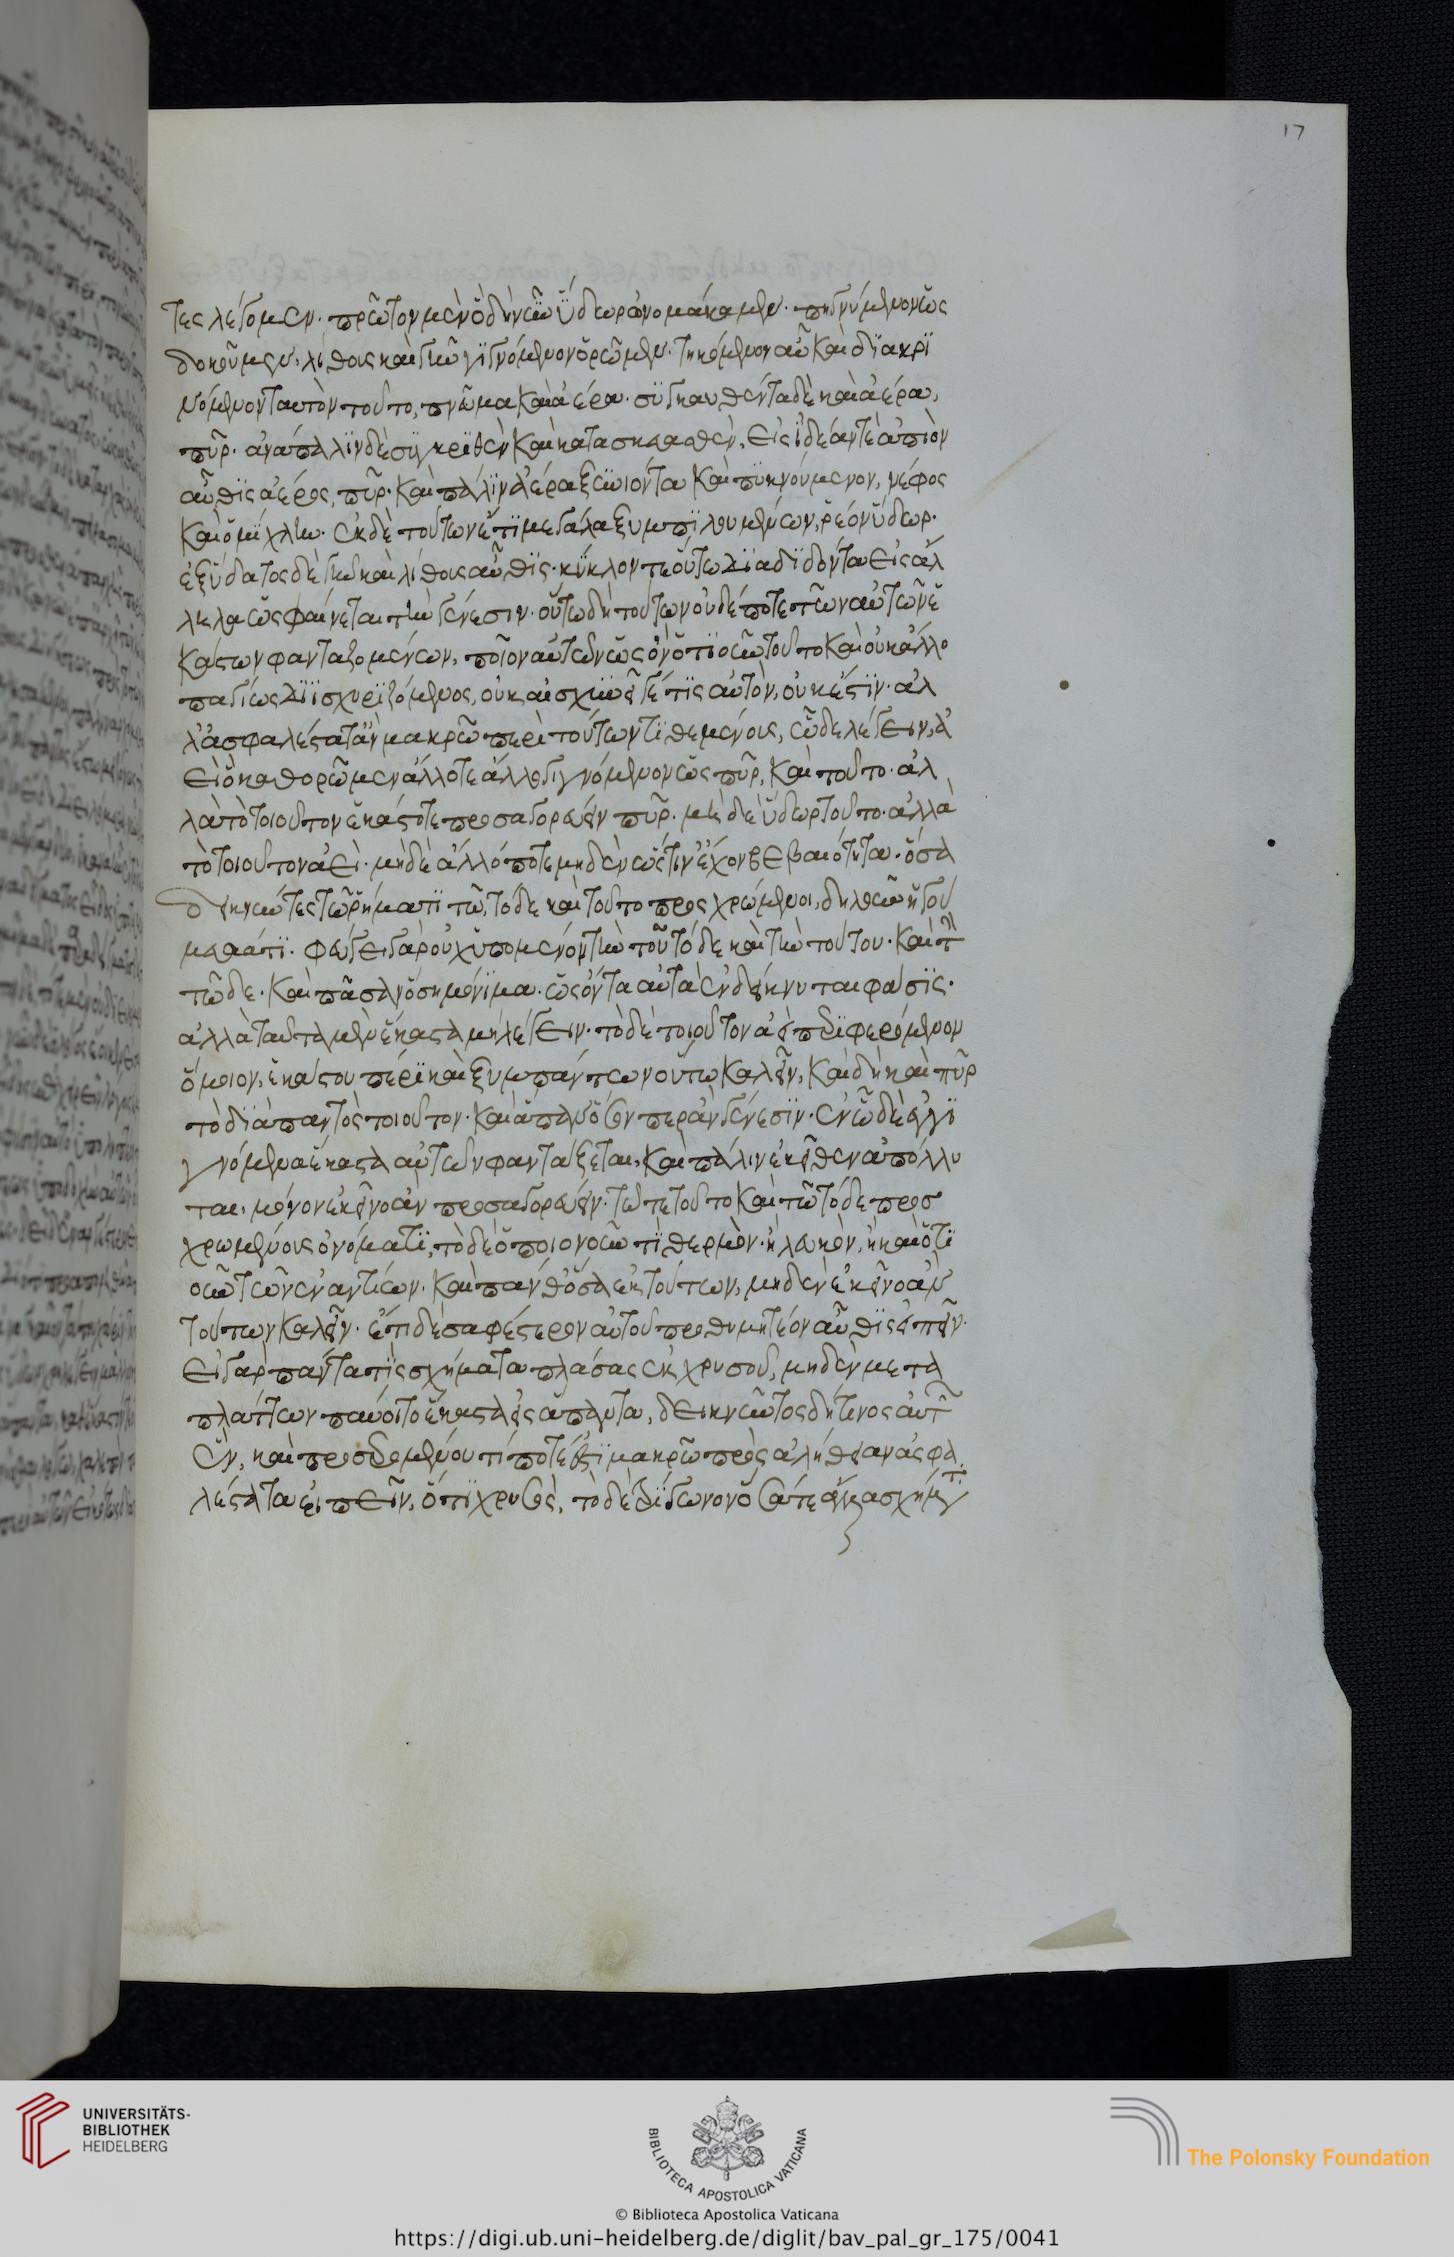 17
τες λέγομεν. πρῶτον μὲν ὃ δὴ νῦν ὕδωρ ὠνομάκαμεν. πηγνύμενον ὡς
δοκοῦμεν, λίθους καὶ γῆν γϊγνόμενον ὁρῶμεν. τηκόμενον αὖ καὶ δϊακρϊ
νόμενον ταυτὸν τοῦτο, πνεῦμα καὶ ἀέρα. συγκαυθέντα δὲ καὶ ἀέρα,
πῦρ. ἀνάπαλϊν δὲ συγκρϊθὲν καὶ κατασβεσθὲν, εἰς ἰδέαν τὲ ἀπιὸν
αὖθϊς ἀέρος, πῦρ. καὶ πάλϊν ἀέρα ξυνιόντα καὶ πυκνούμενον, νέφος
καὶ ὀμϊχλην. ἐκ δὲ τούτων ἔτϊ μεγάλα ξυμπϊλουμένων, ῥέον ὕδωρ.
ἐξ ὕδατος δὲ γῆν καὶ λίθους αὖθϊς. κύκλον τε οὕτω δϊαδϊδόντα εἰς ἀλ
ληλα ὡς φαίνεται τὴν γένεσιν. οὕτω δὴ τούτων οὐδέποτε τῶν αὐτῶν ἑ
κάστων φανταζομένων, ποῖον αὐτῶν ὡς ὂν ὁτϊοῦν τοῦτο καὶ οὐκ ἄλλο
παγίως δϊϊσχυρϊζόμενος, οὐκ αἰσχυνεῖ γέ τϊς αὑτὸν, οὐκ ἔστϊν. ἀλ
λ' ἀσφαλέστατ' ἂν μακρῶ περὶ τούτων τϊθεμένους, ὧδε λέγειν, ἀ
εὶ ὃ καθορῶμεν ἄλλοτε ἄλλη γιγνόμενον ὡς πῦρ, καὶ τοῦτο. ἀλ
λὰ τὸ τοιοῦτον ἑκάστοτε προσαγορεύειν πῦρ. μὴ δὲ ὕδωρ τοῦτο. ἀλλὰ
τὸ τοιοῦτον ἀεὶ. μὴδὲ ἄλλό ποτε μηδὲν ὥς τιν' ἔχον βεβαιότητα. ὅσα
δεικνύντες τῶ ῥήματϊ τῶ, τόδε καὶ τοῦτο προσχρώμενοι, δηλοῦν ἡγού
μεθά τϊ. φεύγει γὰρ οὐχ ὑπομένον τὴν τοῦ τόδε καὶ τὴν τούτου. καὶ τὴν
τῶδε. καὶ πᾶσαν ὅση μόνϊμα. ὡς ὄντα αὐτὰ ἐνδείκνυται φάσϊς.
ἀλλὰ ταῦτα μὲν ἕκαστα μὴ λέγειν. τὸ δὲ τοιοῦτον ἀεὶ περϊφερόμενον
ὅμοιον, ἑκάστου πέρϊ καὶ ξυμπάντων οὕτω καλεῖν, καὶ δὴ καὶ πῦρ
τὸ δϊὰ παντὸς τοιοῦτον. καὶ ἅπαν ὅσον περ ἂν γένεσϊν. ἐν ὧ δὲ ἐγγϊ
γνόμενα ἕκαστα αὐτῶν φαντάζεται, καὶ πάλιν ἐκεῖθεν ἀπόλλυ
ται, μόνον ἐκεῖνο ἂν προσαγορεύειν. τῶ τε τοῦτο καὶ τῶ τόδε προσ
χρωμένους ὀνόματϊ, τὸ δὲ ὁποιονοῦν τϊ θερμὸν. ἢ λευκὸν, ἢ καὶ ὁτϊ
οῦν τῶν ἐναντίων. καὶ πάνθ' ὅσα ἐκ τούτων, μηδὲν ἐκεῖνο ἂν
τούτων καλεῖν. ἔτι δὲ σαφέστερον αὐτοῦ προθυμητέον αὖθϊς εἰπεῖν.
εἰ γὰρ πάντα τὶς σχήματα πλάσας ἐκ χρυσοῦ, μηδὲν μετα
πλάττων παύοιτο ἕκαστα εἰς ἅπαντα, δεικνύντος δή τινος αὐτῶν
ἓν, καὶ προσδομένου τί ποτέ ἐστϊ μακρῶ πρὸς ἀλήθειαν ἀσφα
λέστατα εἰπεῖν, ὅτϊ χρυσὸς, τὸ δὲ τρίγωνον ὅσα τε ἄλλα σχήματα
UNIVERSITÄTS-
BIBLIOTHEK
HEIDELBERG
BIBLIOTECA APOSTOLICA VATICANA
The Polonsky Foundation
© Biblioteca Apostolica Vaticana
https://digi.ub.uni-heidelberg.de/diglit/bav_pal_gr_175/0041